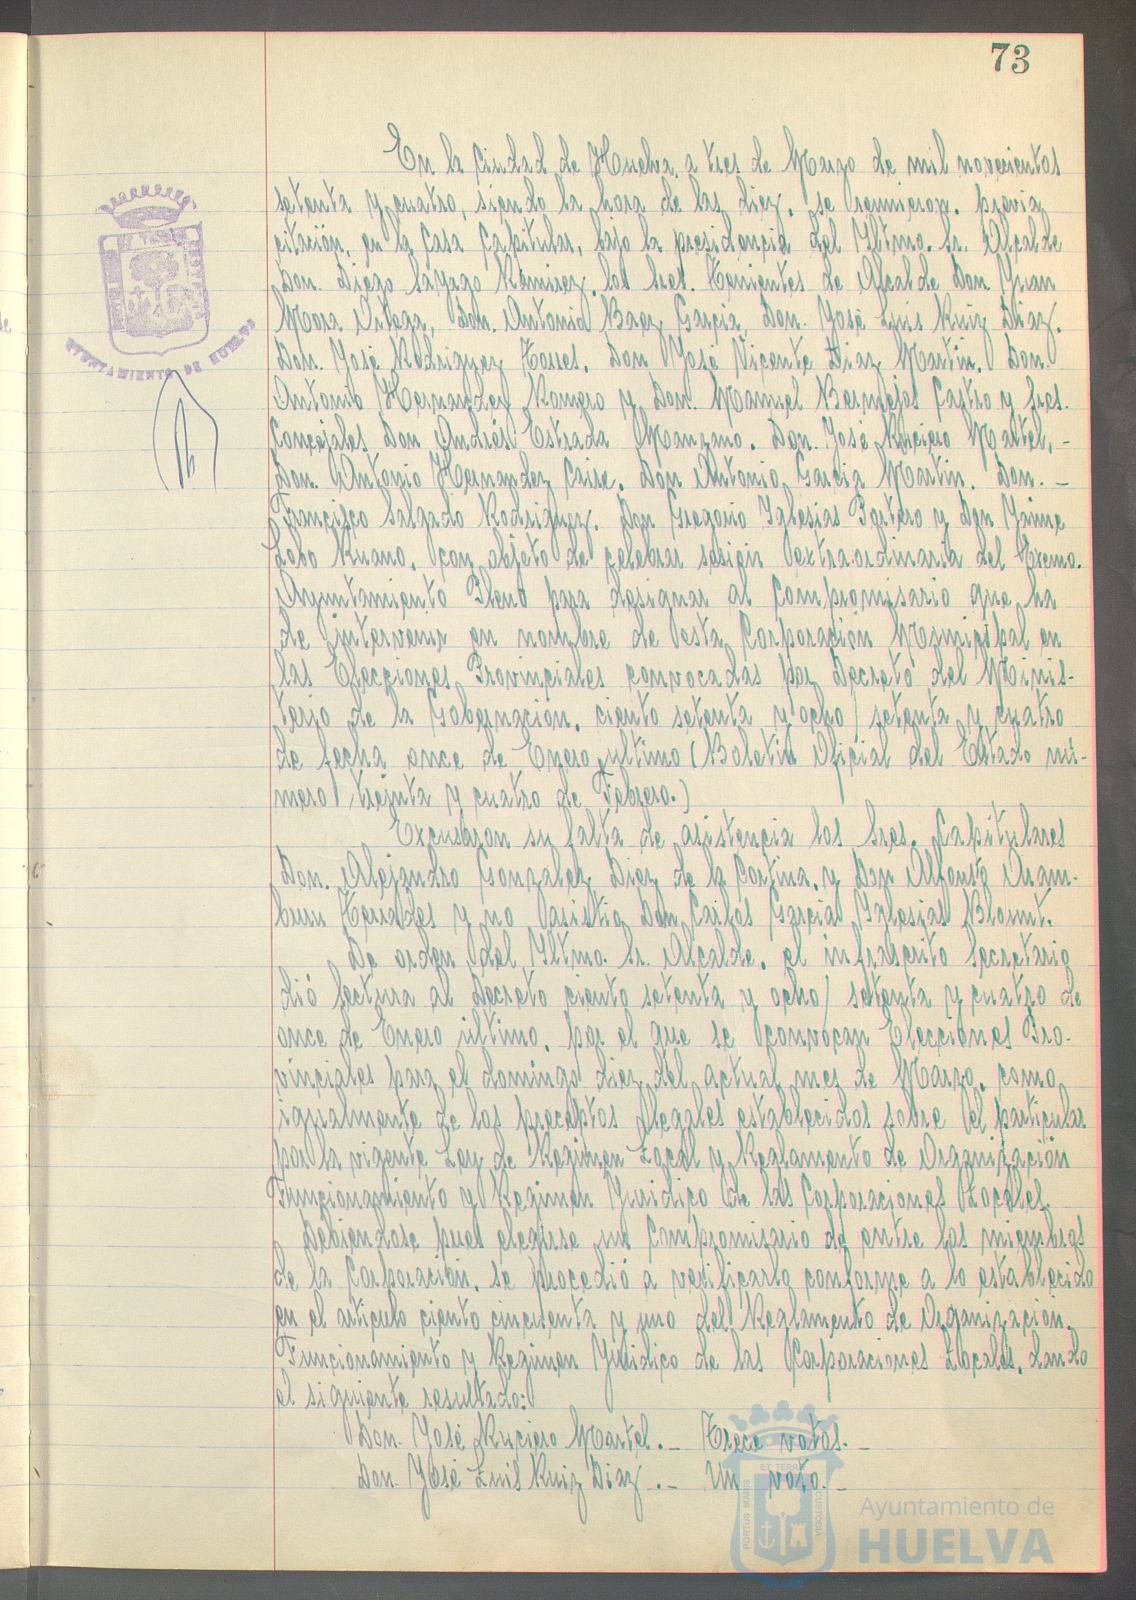 73
En la Ciudad de Huelva, a tres de Marzo de mil novecientos
setenta y cuatro, siendo la hora de las diez, se reunieron, previa
citación, en la Casa Capitular, bajo la presidencia del Iltmo. Sr. Alcalde
Don Diego Sayago Ramirez, los Sres. Tenientes de Alcalde Don Juan
Mora Ortega, Don Antonio Baez Garcia, Don José Luis Ruiz Diaz,
Don José Rodriguez Torres, Don José Vicente Diaz Martin, Don
Antonio Hernandez Romero y Don Manuel Bermejos Castro y Sres.
Concejales Don Andrés Estrada Manzano, Don José Ruciero Martel, -
Don Antonio Hernandez Caire, Don Antonio Garcia Martin, Don -
Francisco Salgado Rodriguez, Don Gregorio Iglesias Portero y Don Jaime
Lobo Ruano, con objeto de celebrar sesión extraordinaria del Excmo.
Ayuntamiento Pleno para designar al Compromisario que ha
de intervenir en nombre de esta Corporación Municipal en
las Elecciones Provinciales convocadas por Decreto del Minis-
terio de la Gobernación, ciento setenta y ocho/ setenta y cuatro
de fecha once de Enero ultimo (Boletin Oficial del Estado nú-
mero, treinta y cuatro de Febrero.)
Excusaron su falta de asistencia los Sres. Capitulares
Don Alejandro Gonzalez Diez de la Cortina, y Don Alfonso Aram-
buru Terrades y no asistió Don Carlos Garcia Iglesias Blount.
De orden del Iltmo. Sr. Alcalde, el infrascrito Secretario
dió lectura al Decreto ciento setenta y ocho/ setenta y cuatro de
once de Enero último, por el que se convocan Elecciones Pro-
vinciales para el domingo diez del actual mes de Marzo, como
igualmente de los preceptos legales establecidos sobre el particular
por la vigente Ley de Regimen Local y Reglamento de Organización
Funcionamiento y Regimen Juridico de las Corporaciones Locales.
Debiendose pues elegirse un Compromisario de entre los miembros
de la Corporación, se procedió a verificarlo conforme a lo establecido
en el articulo ciento cincuenta y uno del Reglamento de Organización,
Funcionamiento y Regimen Juridico de las Corporaciones Locales, dando
el siguiente resultado:
Don José Ruciero Martel.- Trece votos.-
Don José Luis Ruiz Diaz.- Un voto.-
AYUNTAMIENTO DE HUELVA
ET TERRÆ
PORTUS MARIS
CUSTODIA
Ayuntamiento de
HUELVA